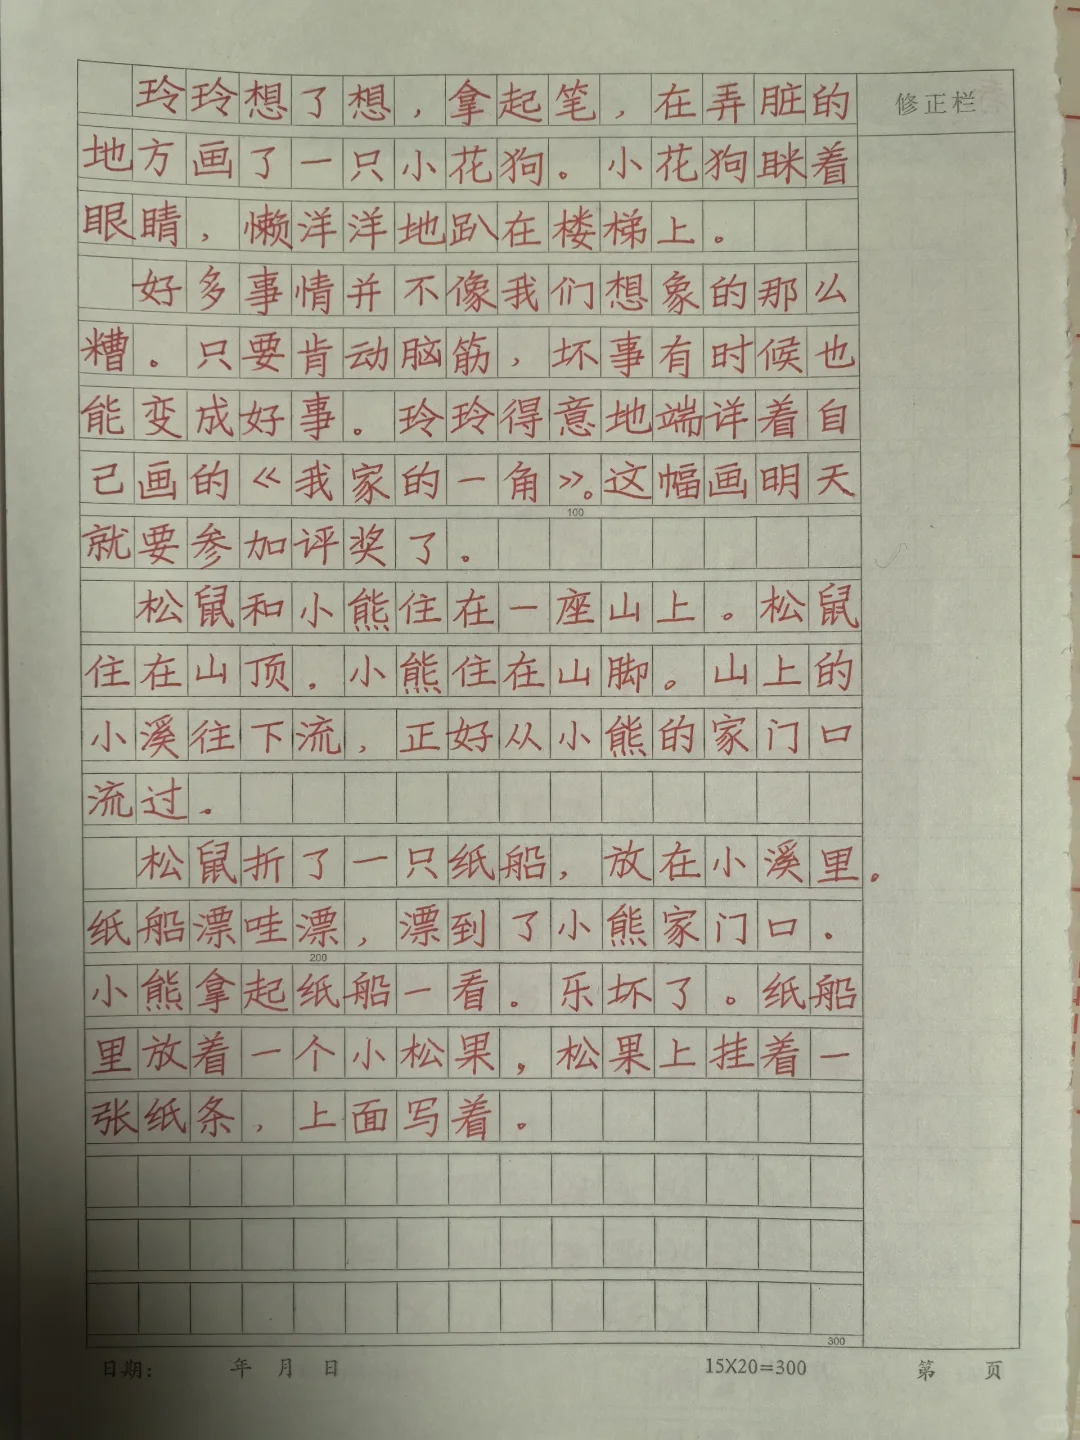 玲玲想了想，拿起笔，在弄脏的
修正栏
地方画了一只小花狗。小花狗眯着
眼睛，懒洋洋地趴在楼梯上。
好多事情并不像我们想象的那么
糟。只要肯动脑筋，坏事有时候也
能变成好事。玲玲得意地端详着自
己画的《我家的一角》。这幅画明天
100
就要参加评奖了。
松鼠和小熊住在一座山上。松鼠
住在山顶．小熊住在山脚。山上的
小溪往下流，正好从小熊的家门口
流过。
松鼠折了一只纸船，放在小溪里。
纸船漂哇漂，漂到了小熊家门口．
200
小熊拿起纸船一看．乐坏了。纸船
里放着一个小松果，松果上挂着一
张纸条，上面写着。
300
日期： 年 月 日 15X20=300 第 页